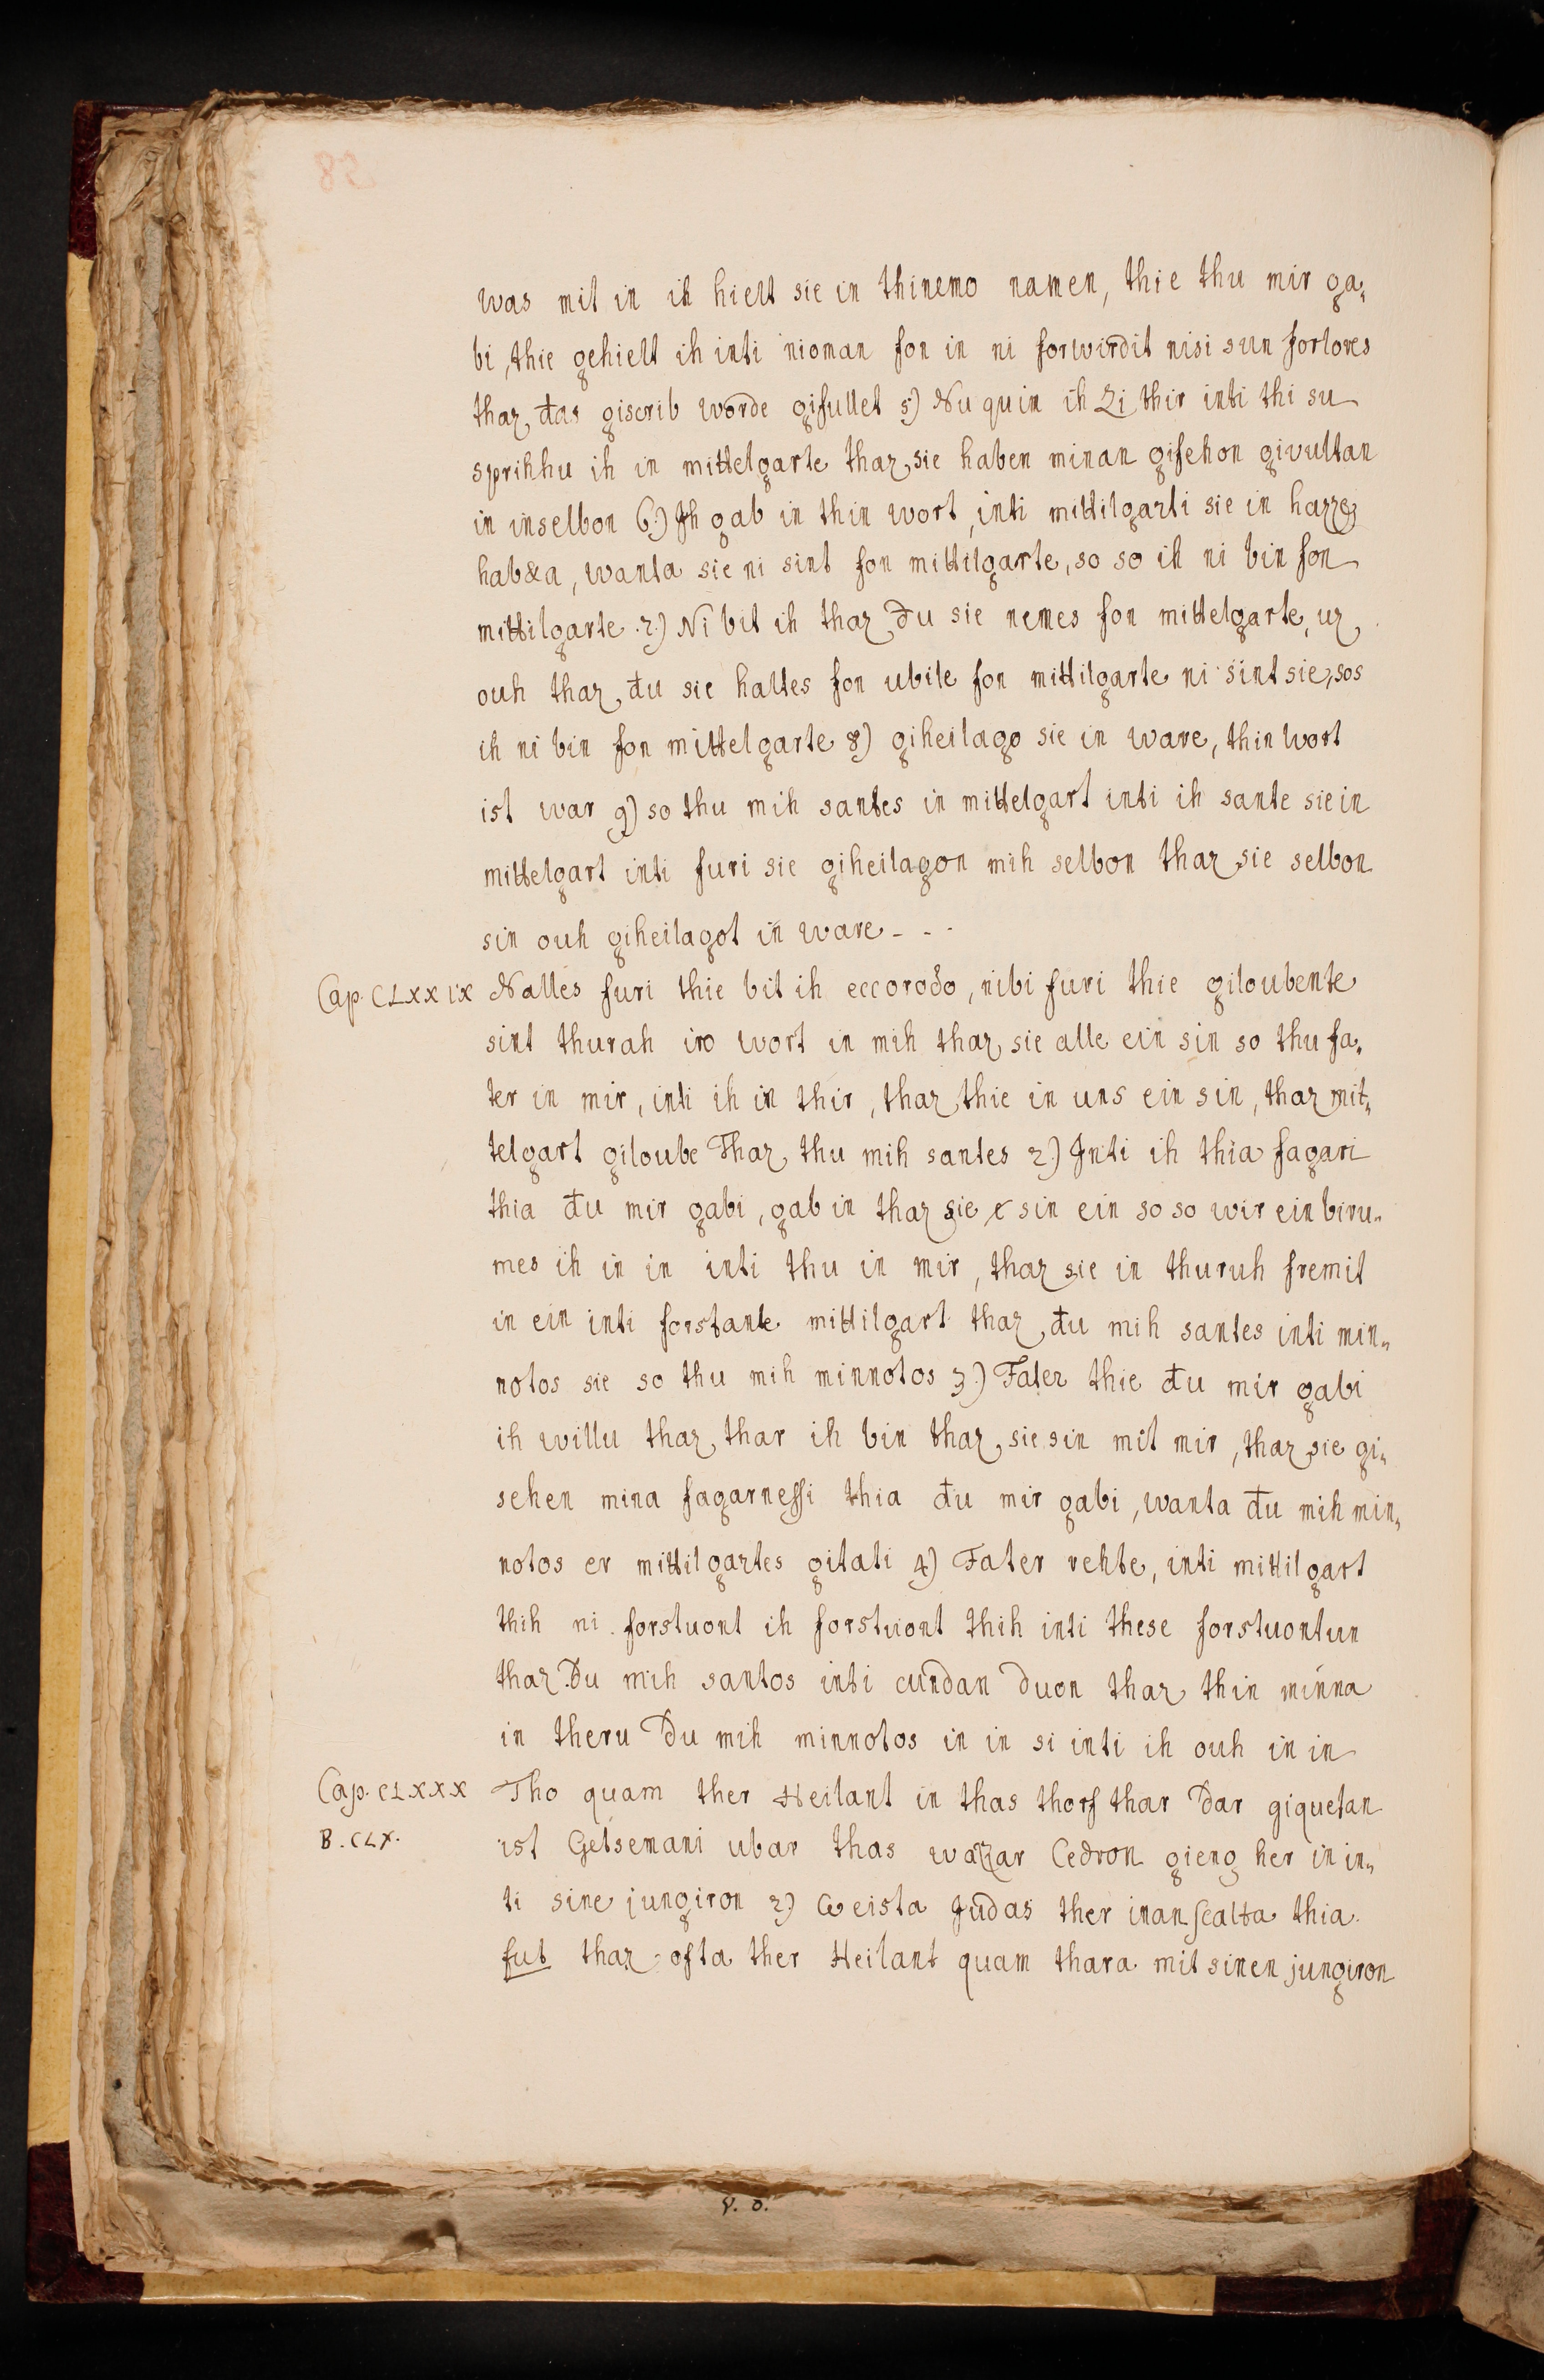 was mit in ih hielt sie in thinemo namen, thie thu mir ga„
bi, thie gehielt ih inti nioman fon in ni forwirdit nisi sun forlores
thaz đas giscrib worde gifullet 5) Nu quin ih Zi thir inti thi su
sprihhu ih in mittelgarte thaz sie haben minan gifehon givultan
in inselbon 6.) Ih gab in thin wort, inti mittilgarti sie in hazze
hab&a, wanta sie ni sint fon mittilgarte, so so ih ni bin fon
mittilgarte. 7.) Ni bit ih thaz du sie nemes fon mittelgarte, uz
ouh thaz đu sie haltes fon ubile fon mittilgarte ni sint sie, sos
ih ni bin fon mittelgarte 8) giheilago sie in ware, thin wort
ist war 9) so thu mih santes in mittelgart inti ih sante sie in
mittelgart inti furi sie giheilagon mih selbon thaz sie selbon
sin ouh giheilagot in ware - - -
Cap. CLXXIX Nalles furi thie bit ih eccorodo, nibi furi thie giloubente
sint thurah iro wort in mih thaz sie alle ein sin so thu fa„
ter in mir, inti ih in thir, thaz thie in uns ein sin, thaz mit„
telgart giloube Thaz thu mih santes 2.) Inti ih thia fagari
thia đu mir gabi, gab in thaz sie sin ein so so wir ein biru„
mes ih in in inti thu in mir, thaz sie in thuruh fremit
in ein inti forstante mittilgart thaz đu mih santes inti min„
notos sie so thu mih minnotos 3.) Fater thie đu mir gabi
ih willu thaz thar ih bin thaz sie sin mit mir, thaz sie gi„
sehen mina fagarnessi thia đu mir gabi, wanta đu mih min„
notos er mittilgartes gitati 4.) Fater rehte, inti mittilgart
thih ni forstuont ih forstuont thih inti these forstuontun
thaz Du mih santos inti cundan duon thaz thin minna
in theru Du mih minnotos in in si inti ih ouh in in
Cap. CLXXX Tho quam ther Heilant in thas thorf thar Dar giquetan
B. CLX. ist Getsemani ubar thas wazzar Cedron gieng her in in„
ti sine jungiron 2.) Weista Judas ther inan scalta thia
fut thaz ofta ther Heilant quam thara mit sinen jungiron